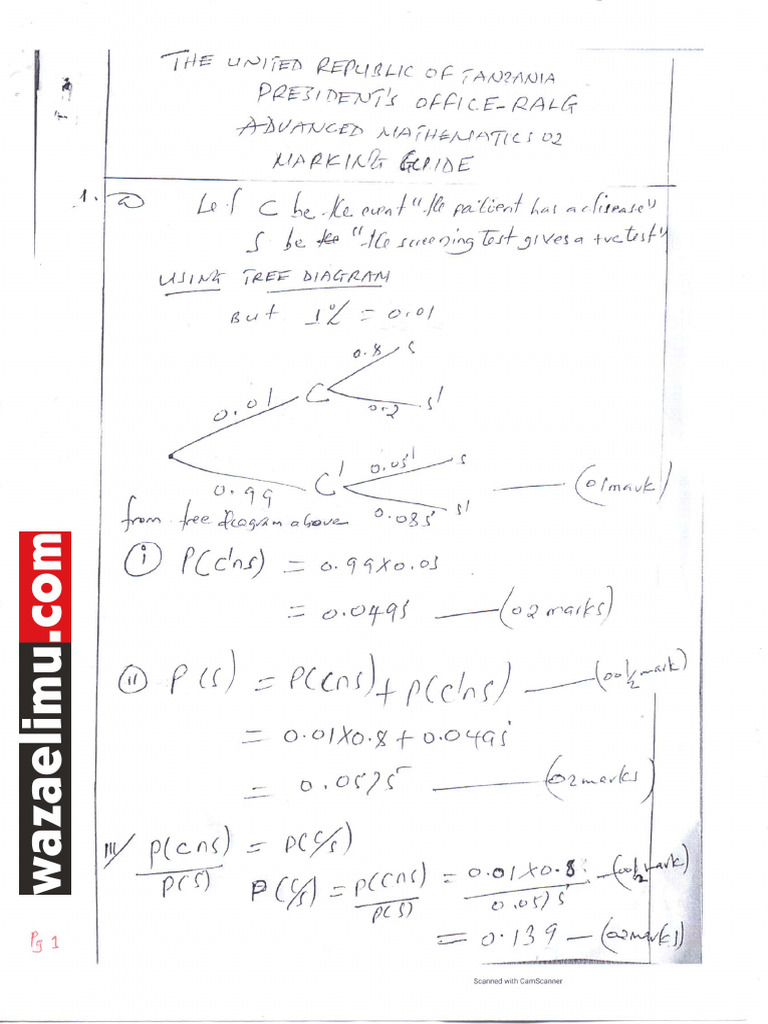 THE UNITED REPUBLIC OF TANZANIA
PRESIDENT'S OFFICE-RALG
ADVANCED MATHEMATICS 02
MARKING GUIDE
1. a) Let C be the event "the patient has a disease"
S be the "the screening test gives a +ve test"
USING TREE DIAGRAM
BUT 1% = 0.01
0.8 S
0.01 C
0.2 S'
0.05 S
0.99 C' (01 mark)
S'
from tree diagram above
(i) P(C'nS) = 0.99 X 0.05
= 0.0495 (02 marks)
(ii) P(S) = P(CnS) + P(C'nS) (00½ mark)
= 0.01 X 0.8 + 0.0495
= 0.0575 (02 marks)
III/ P(CnS)/P(S) = P(C/S)
P(C/S) = P(CnS)/P(S) = 0.01 X 0.8/0.0575 (00½ mark)
= 0.139 — (02 marks)
wazaelimu.com
Pg 1
Scanned with CamScanner